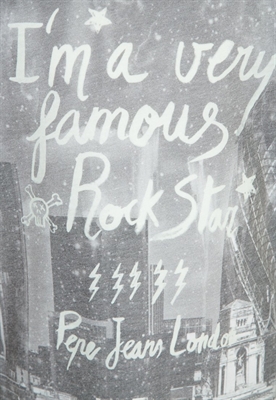 I'm a very
famous
Rock Star
Pepe Jeans London